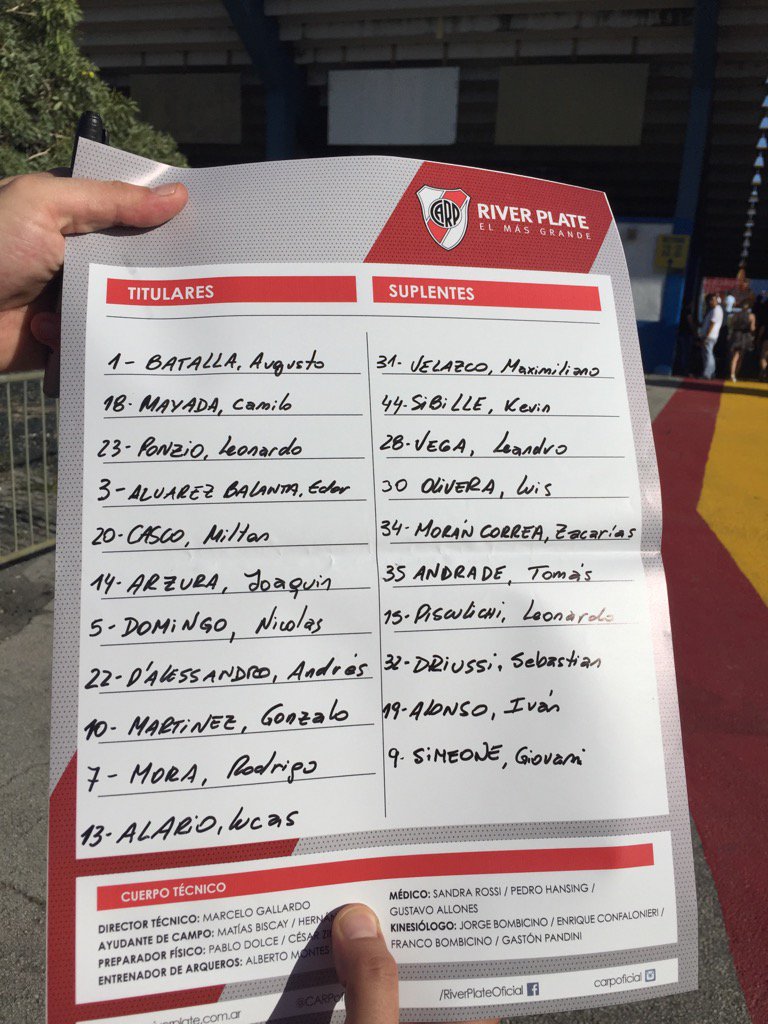 CARP
RIVER PLATE
EL MÁS GRANDE
TITULARES
1- BATALLA, Augusto
18- MAYADA, Camilo
23- PONZIO, Leonardo
3- ALVAREZ BALANTA, Eder
20- CASCO, Milton
14- ARZURA, Joaquin
5- DOMINGO, Nicolas
22- D'ALESSANDRO, Andrés
10- MARTINEZ, Gonzalo
7- MORA, Rodrigo
13- ALARIO, Lucas
SUPLENTES
31- VELAZCO, Maximiliano
44- SIBILLE, Kevin
28- VEGA, Leandro
30 OLIVERA, Luis
34- MORÁN CORREA, Zacarías
35 ANDRADE, Tomás
15- PISCULICHI, Leonardo
32- DRIUSSI, Sebastian
19- ALONSO, Iván
9- SIMEONE, Giovani
CUERPO TÉCNICO
DIRECTOR TÉCNICO: MARCELO GALLARDO
AYUDANTE DE CAMPO: MATÍAS BISCAY /
PREPARADOR FÍSICO: PABLO DOLCE / CÉSAR
ENTRENADOR DE ARQUEROS: ALBERTO
MÉDICO: SANDRA ROSSI / PEDRO HANSING /
GUSTAVO ALLONES
KINESIÓLOGO: JORGE BOMBICINO / ENRIQUE CONFALONIERI /
FRANCO BOMBICINO / GASTÓN PANDINI
/RiverPlateOficial
carpoficial